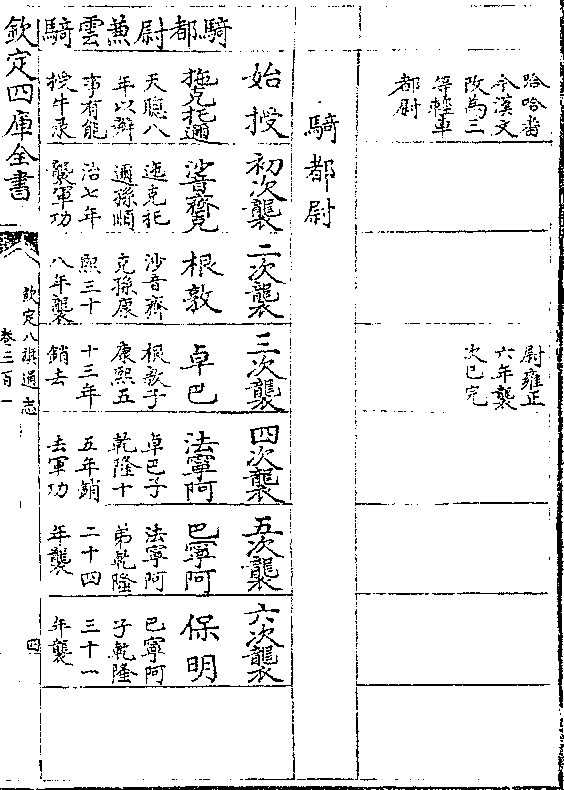 哈哈畨
今漢文
改為三
等輕車
都尉
尉雍正
六年襲
次已完
騎都尉
始授
初次襲
二次襲
三次襲
四次襲
五次襲
六次襲
拖克托邇
天聰八
年以辦
事有能
授牛录
沙音齊克
拖克托
邇孫順
治七年
襲軍功
根敦
沙音齊
克孫康
熙三十
八年襲
卓巴
根敦子
康熙五
十三年
銷去
法寧阿
卓巴子
乾隆十
五年銷
去軍功
巴寧阿
法寧阿
弟乾隆
二十四
年襲
保明
巴寧阿
子乾隆
三十一
年襲
騎都尉兼雲騎
欽定四庫全書
欽定八旗通志
卷三百一
四